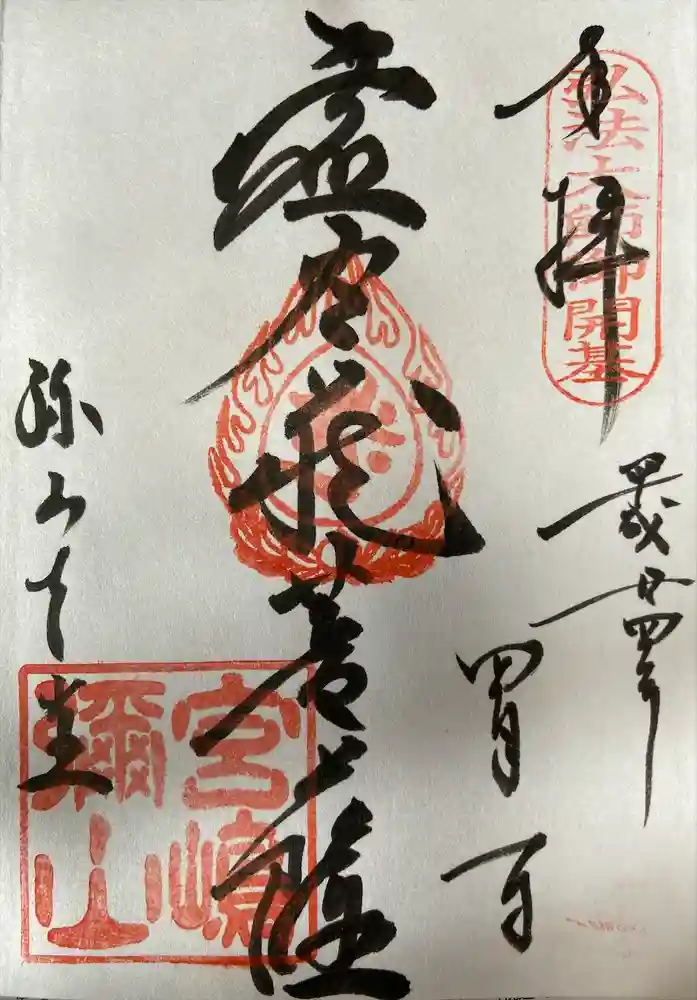 奉拝
弘法大師御開基
平成廿四年
四月一日
虚空蔵菩薩
弥山本堂
宮嶋
彌山